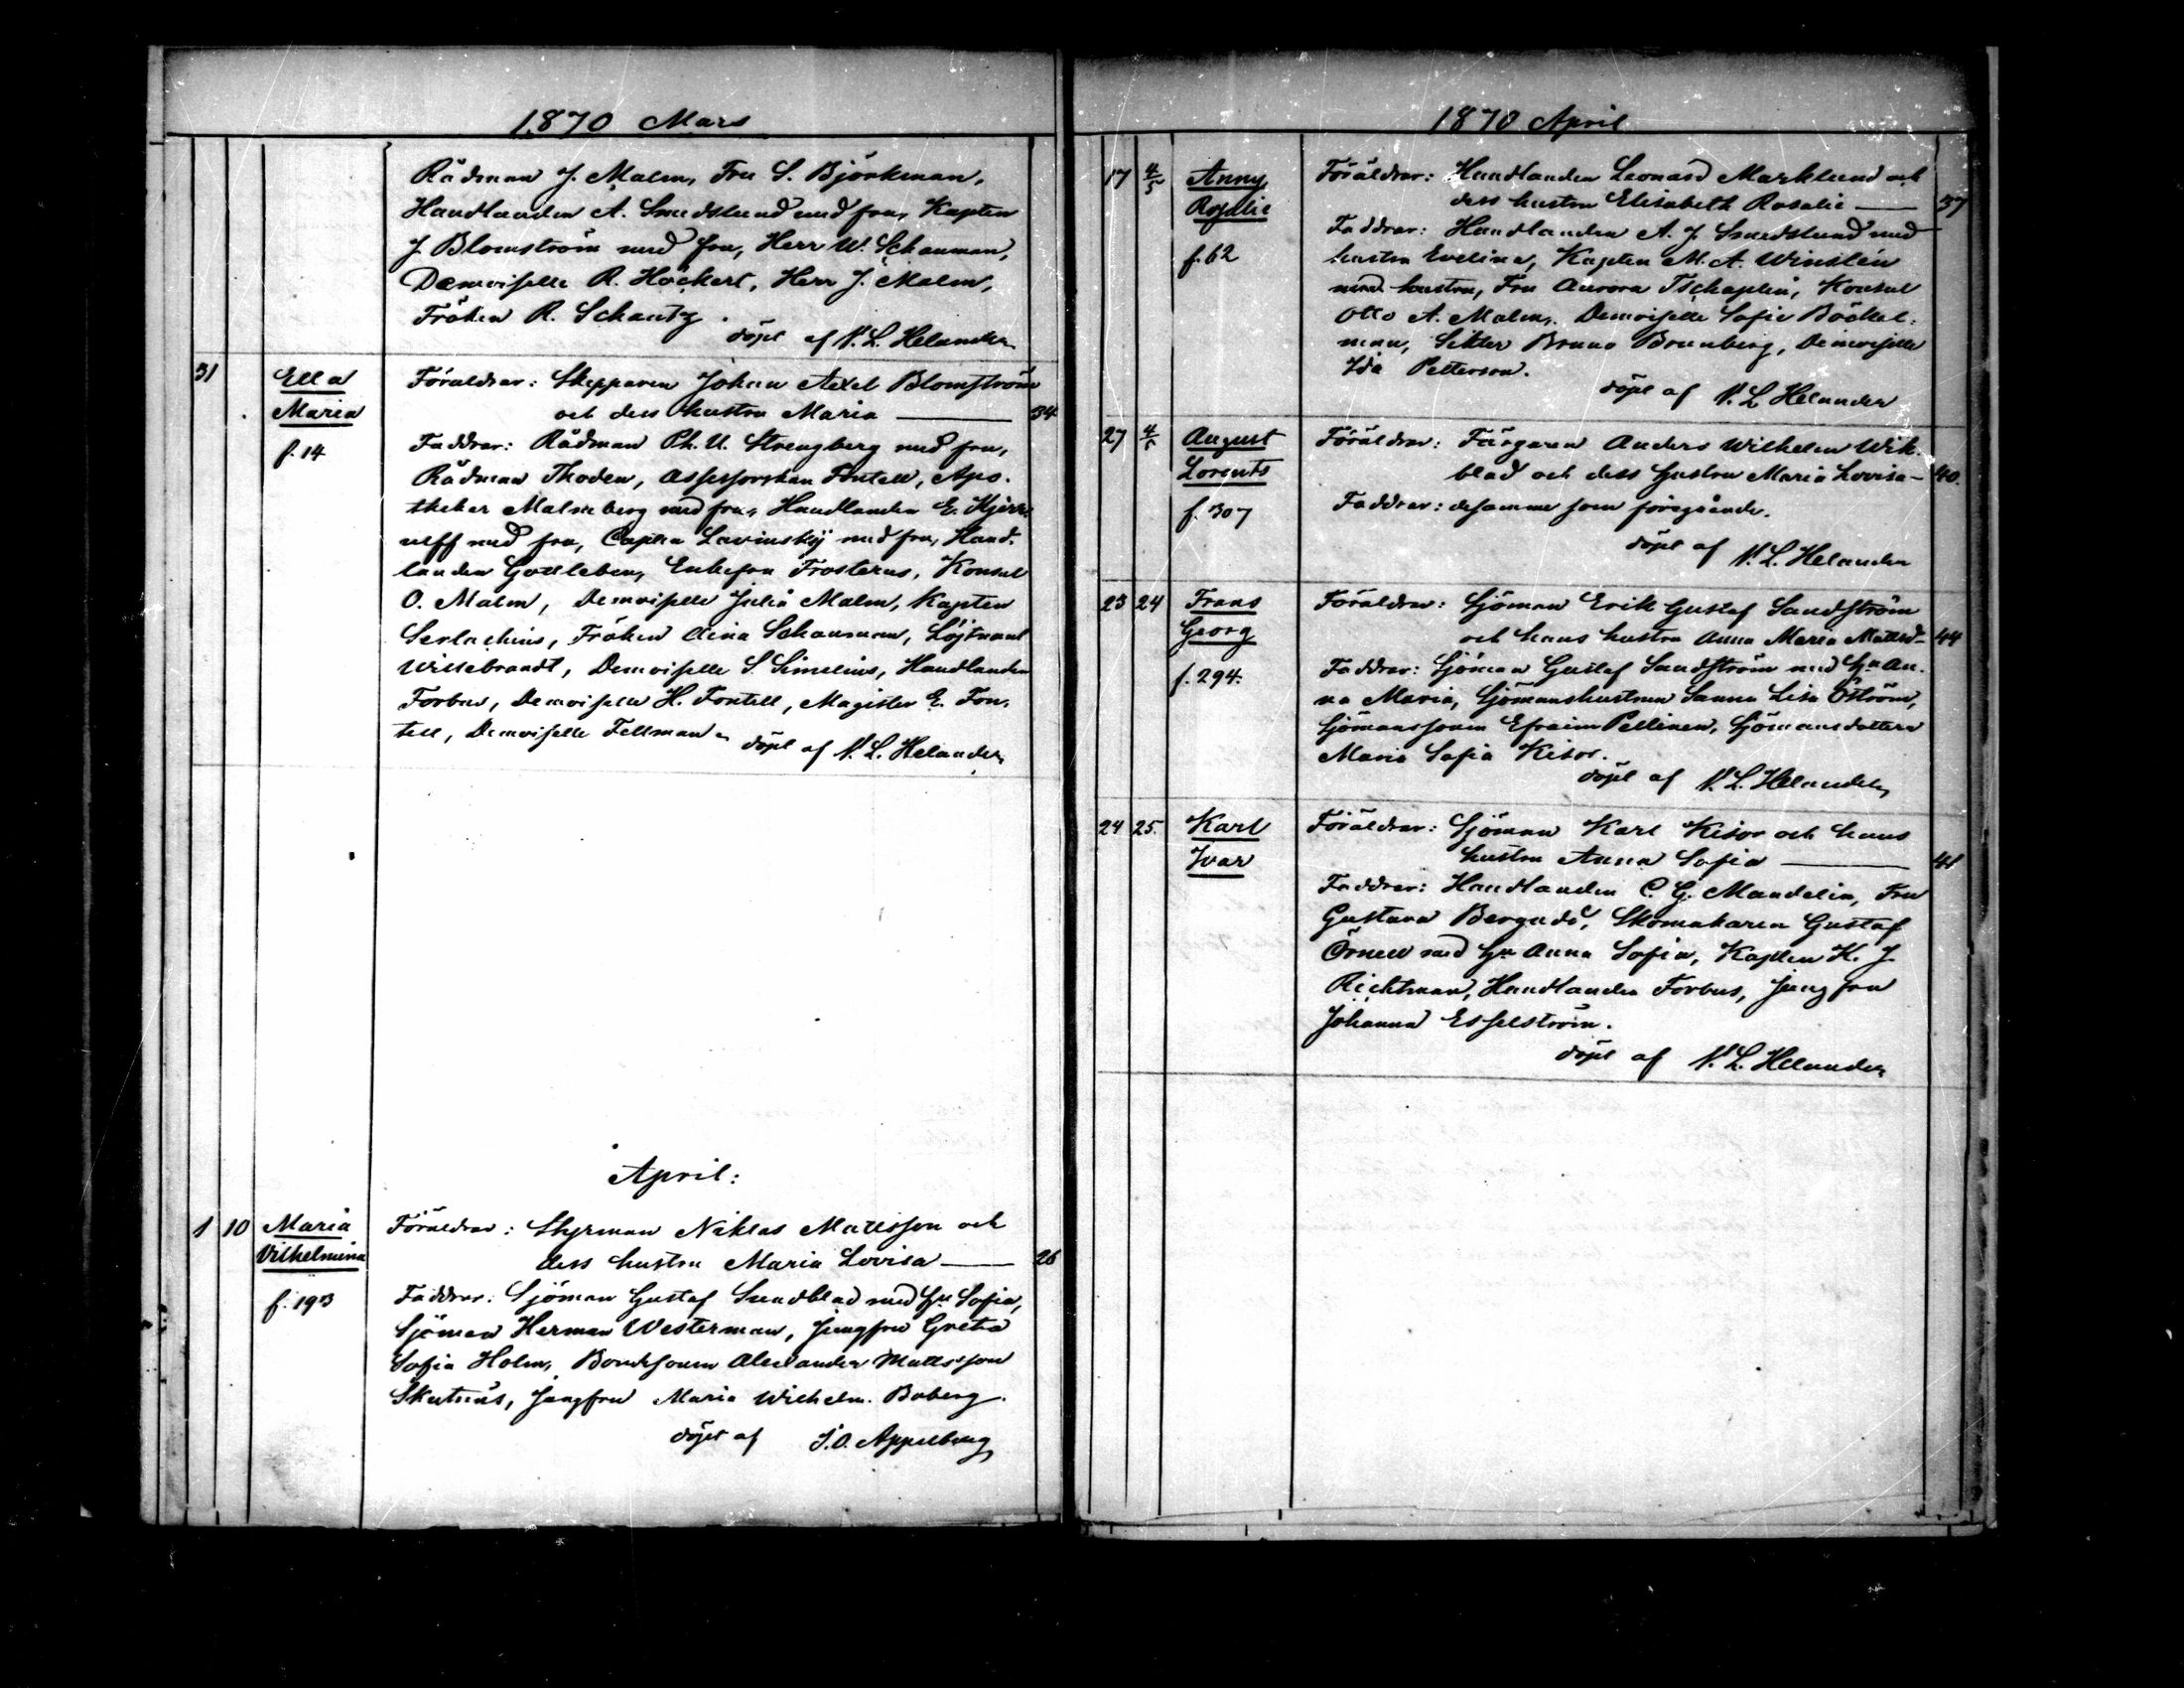 1870 Mars
Rådman J. Malm, Fru S. Björkman,
Handlanden A. Smedslund med fru, Kapten
J. Blomström med fru, Herr W. Schauman,
Demoiselle R. Höckert, Herr J. Malm,
Fröken R. Schantz.
döpt af N. L. Helander
31 Ella Föräldrar: Skepparen Johan Axel Blomström
Maria och dess hustru Maria — 34
f. 14 Faddrar: Rådman Ph. U. Strengberg med fru,
Rådman Thoden, Assessorskan Fontell, Apo-
theker Malmberg med fru, Handlanden E. Hjerr-
ulff med fru, Capten Lavinskij med fru, Hand-
landen Gottleben, Enkefru Frosterus, Konsul
O. Malm, Demoiselle Julia Malm, Kapten
Serlachius, Fröken Aina Schauman, Löjtnant
Willebrandt, Demoiselle S. Simelius, Handlanden
Forbus, Demoiselle H. Fontell, Magister E. Fon-
tell, Demoiselle Fellman.
döpt af N. L. Helander
April:
1 10 Maria Föräldrar: Styrman Niklas Mattsson och
Vilhelmina dess hustru Maria Lovisa — 26
f. 193 Faddrar: Sjöman Gustaf Sundblad med Hu Sofia,
Sjöman Herman Westerman, Jungfru Greta
Sofia Holm, Bondesonen Alexander Mattsson
Skutnäs, Jungfru Maria Wilhelm. Boberg.
döpt af J. O. Appelberg
1870 April
17 4/5 Anny Föräldrar: Handlanden Leonard Marklund och
Rosalie dess hustru Elisabeth Rosalie — 37
Faddrar: Handlanden A. J. Smedslund med
f. 62 hustru Evelina, Kapten M. A. Winstén
med hustru, Fru Aurora Tschaplin, Konsul
Otto A. Malm, Demoiselle Sofie Böckel-
man, Bruno Brunberg, Demoiselle
Ida Petterson.
döpt af N. L. Helander
27 4/5 August Föräldrar: Färgaren Anders Wilhelm Wik-
Lorents blad och dess hustru Maria Lovisa — 40.
f. 307 Faddrar: desamme som föregående.
döpt af N. L. Helander
23 24 Frans Föräldrar: Sjöman Erik Gustaf Sandström
Georg och hans hustru Anna Maria Mattsd. — 44
f. 294. Faddrar: Sjöman Gustaf Sandström med Hu An-
na Maria, Sjömanshustrun Sanna Lisa Öström,
Sjömanssonen Efraim Pellinen, Sjömansdottern
Maria Sofia Kisor.
döpt af N. L. Helander
24 25. Karl Föräldrar: Sjöman Karl Kisor och hans
Ivar hustru Anna Sofia — 41
Faddrar: Handlanden C. G. Mandelin, Fru
Gustava Bergudd, Skomakaren Gustaf
Örnell med Hu Anna Sofia, Kapten K. J.
Richtman, Handlanden Forbus, Jungfru
Johanna Esselström.
döpt af N. L. Helander